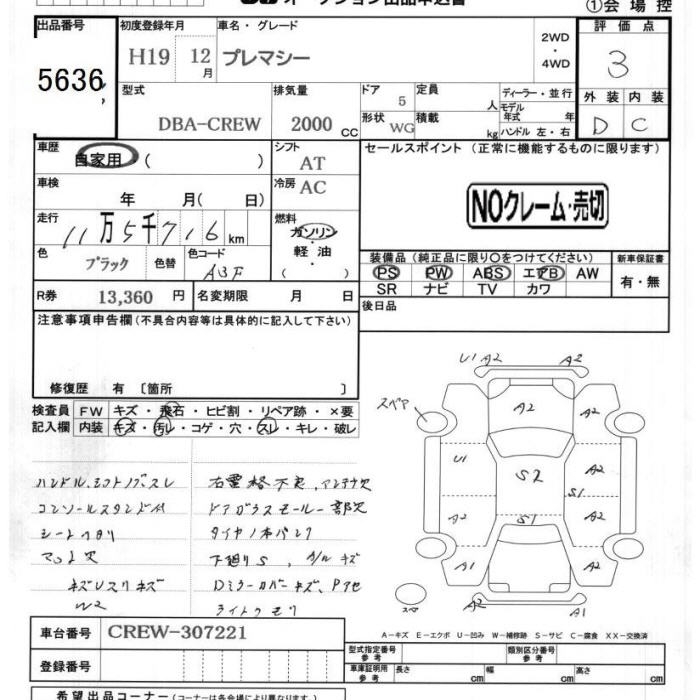 オークション出品申込書
①会場控
出品番号
5636
初度登録年月
H19 12月
車名・グレード
プレマシー
2WD・4WD
評価点
3
外装 内装
D C
型式
DBA-CREW
排気量
2000 CC
ドア
5
形状
WG
定員 人
積載 kg
ディーラー・並行
モデル年式 年
ハンドル 左・右
車歴
自家用・( )
シフト
AT
セールスポイント (正常に機能するものに限ります)
NOクレーム・売切
車検
年 月( 日)
冷房
AC
走行
11万5千716 km
燃料
ガソリン・軽油・( )
色
ブラック
色替
色コード
A3F
装備品 (純正品に限り○をつけてください)
PS PW ABS エアB AW
SR ナビ TV カワ
新車保証書
有・無
R券 13,360 円
名変期限 月 日
後日品
注意事項申告欄 (不具合内容等は具体的に記入して下さい)
修復歴 有 [箇所 ]
検査員記入欄
FW キズ・飛石・ヒビ割・リペア跡・×要
内装 キズ・汚レ・コゲ・穴・スレ・キレ・破レ
ハンドル、シフトノブスレ
コンソールスタンド付
シートヘタリ
マット欠
キズUスリキズ
W2
右電格不良、アンテナ欠
ドアガラスモール一部欠
タイヤ1本パンク
下廻りS、A/Wキズ
Dミラーカバーキズ、Pアセ
ライトクモリ
U1 A2 A2
スペア
A2
U1 S2 A2
S1
A2 S1 A2
A1 A1
スペア A2 A1
A-キズ E-エクボ U-凹み W-補修跡 S-サビ C-腐食 XX-交換済
車台番号
CREW-307221
登録番号
型式指定番号 参考
類別区分番号 参考
車庫証明用 参考
長さ cm 幅 cm 高さ cm
希望出品コーナー (コーナーは各会場により異なります)